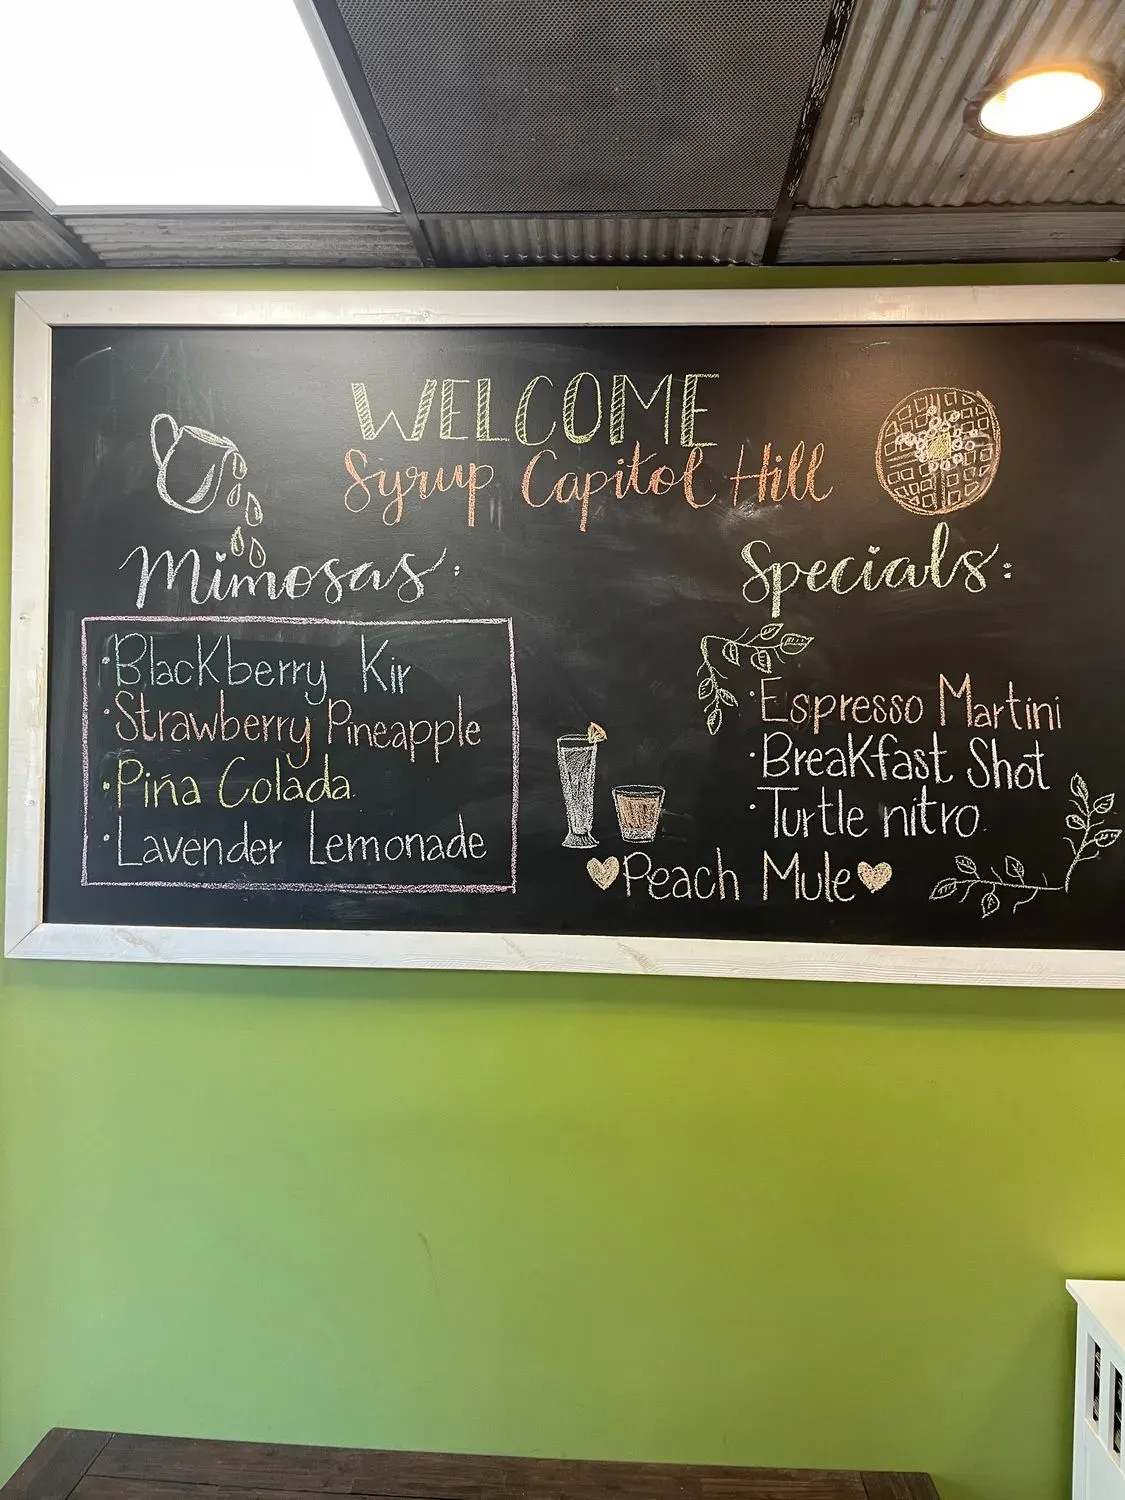 WELCOME
Syrup Capitol Hill
Mimosas:
· Blackberry Kir
· Strawberry Pineapple
· Piña Colada
· Lavender Lemonade
Specials:
· Espresso Martini
· Breakfast Shot
· Turtle nitro
Peach Mule